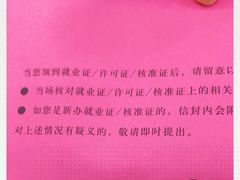 当您领到就业证/许可证/核准证后，请留意以
● 当场核对就业证/许可证/核准证上的相关
● 如您是新办就业证/核准证的，信封内会附
对上述情况有疑义的，敬请即时提出。